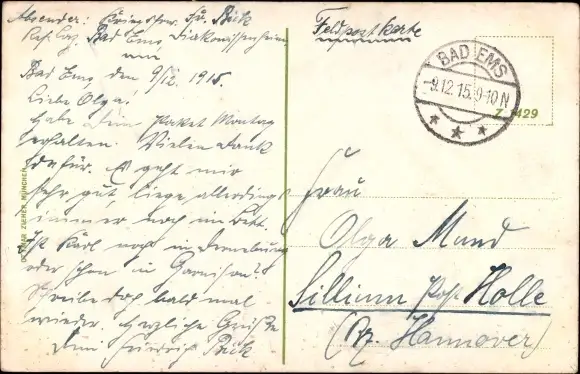 Absender: Fr. Bick
Res. Laz. Bad Ems, Diakonissenheim
Bad Ems, den 9/12. 1915.
Liebe Olga!
Habe Dein Paket Montag
erhalten. Vielen Dank
dafür. Es geht mir
sehr gut, liege allerdings
immer noch im Bett.
Ist Karl noch in
oder schon in Garnison?
Schreibe doch bald mal
wieder. Herzliche Grüße
Dein Friedrich Bick
OTTMAR ZIEHER, MÜNCHEN
Feldpostkarte
BAD EMS
9.12.15.9-10N
Z. 1429
Frau
Olga Mund
Sillium Post Holle
(Bz. Hannover)